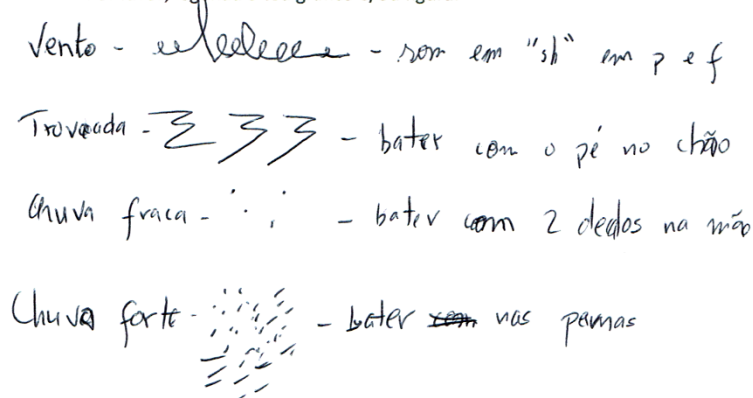 Vento - - som em "sh" em p e f
Trovoada - - bater com o pé no chão
Chuva fraca - - bater com 2 dedos na mão
Chuva forte - - bater nas pernas